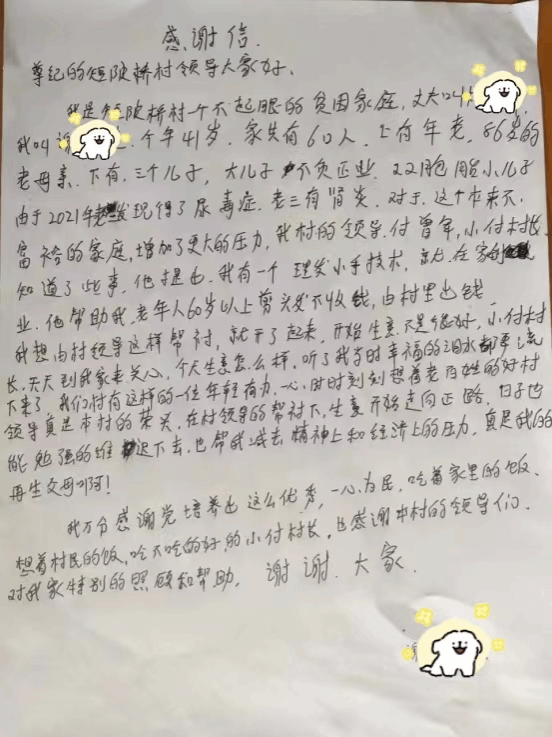 感谢信.
尊纪的短陂桥村领导大家好、
我是短陂桥村一个不起眼的贫困家庭, 丈夫叫
我叫谢 今年41岁. 家共有6口人. 上有年老, 86岁的
老母亲. 下有. 三个儿子, 大儿子不负正业. 22月包胎小儿子
由于2021年发现得了尿毒症. 老三有肾炎. 对于. 这个本来不.
富裕的家庭, 增加了更大的压力, 我村的领导. 付曾年, 小付村长.
知道了些事. 他提出. 我有一个 理发小手技术, 就. 在家创
业. 他帮助我. 老年人60岁以上剪头发不收钱, 由村里出钱
我想由村领导这样帮衬, 就干了起来, 开始生意不是很好, 小付村
长. 天天到我家来关心, 今天生意怎么样, 听了我当时幸福的泪水都要流
下来了 我们村有这样的一位年轻有力. 一心. 时时刻刻想着老百姓的好村
领导真是本村的荣买. 在村领导的帮衬下, 生意开始走向正路. 日子也
能勉强的维迟下去. 也帮我减去精神上和经济上的压力, 真是我的
再生父母啊!
我万分感谢党培养出这么优秀, 一心为民, 吃着家里的饭、
想着村民的饭, 吃不吃的好, 的小付村长, 也感谢本村的领导们、
对我家特别的照顾和帮助, 谢谢. 大家.
谢